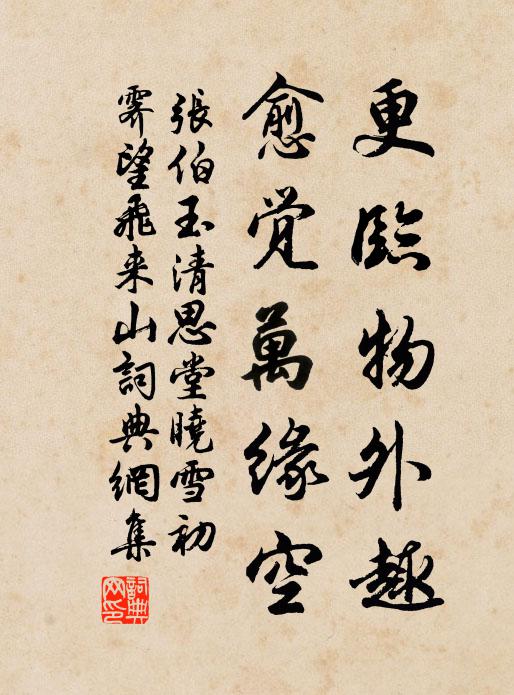 更臨物外趣
愈覺萬緣空
張伯玉清思堂曉雪初
霽望飛来山詞典網集
詞典网印